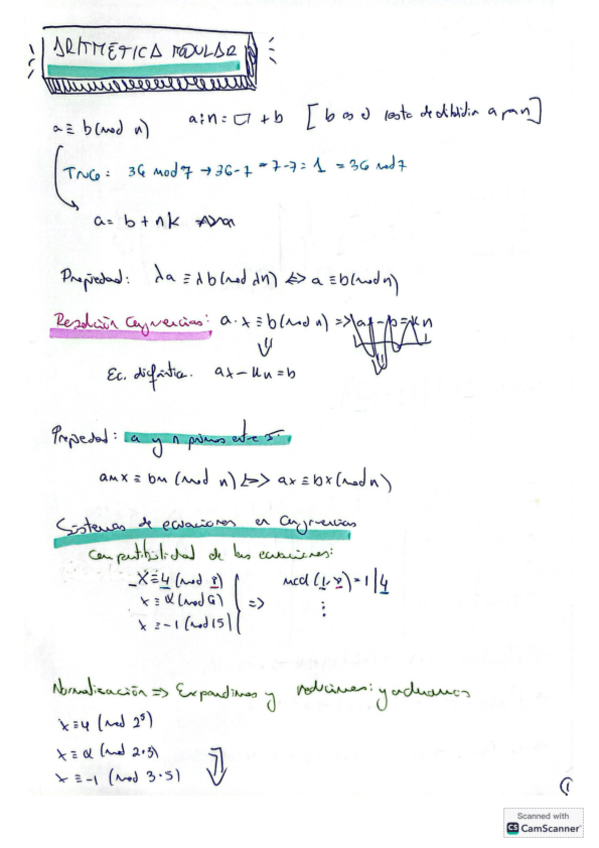 ARITMÉTICA MODULAR
a ≡ b (mod n)
a:n = □ + b [b es el resto de dividir a por n]
TRUCO: 36 mod 7 → 36-7 = 7-7 = 1 = 36 mod 7
a = b + nk
Propiedad: λa ≡ λb (mod λn) ⇔ a ≡ b (mod n)
Resolución Congruencias: a·x ≡ b (mod n) =>
Ec. diofántica: ax - kn = b
Propiedad: a y n primos entre sí
amx ≡ bm (mod n) ⇔ ax ≡ bx (mod n)
Sistemas de ecuaciones en Congruencias
Compatibilidad de las ecuaciones:
x ≡ 4 (mod 8)
x ≡ α (mod 6) =>
x ≡ -1 (mod 15)
mcd (1, 8) = 1 | 4
⋮
Normalización => Expandimos y reducimos:
x ≡ 4 (mod 2³)
x ≡ α (mod 2·3)
x ≡ -1 (mod 3·5)
1
Scanned with
CS CamScanner